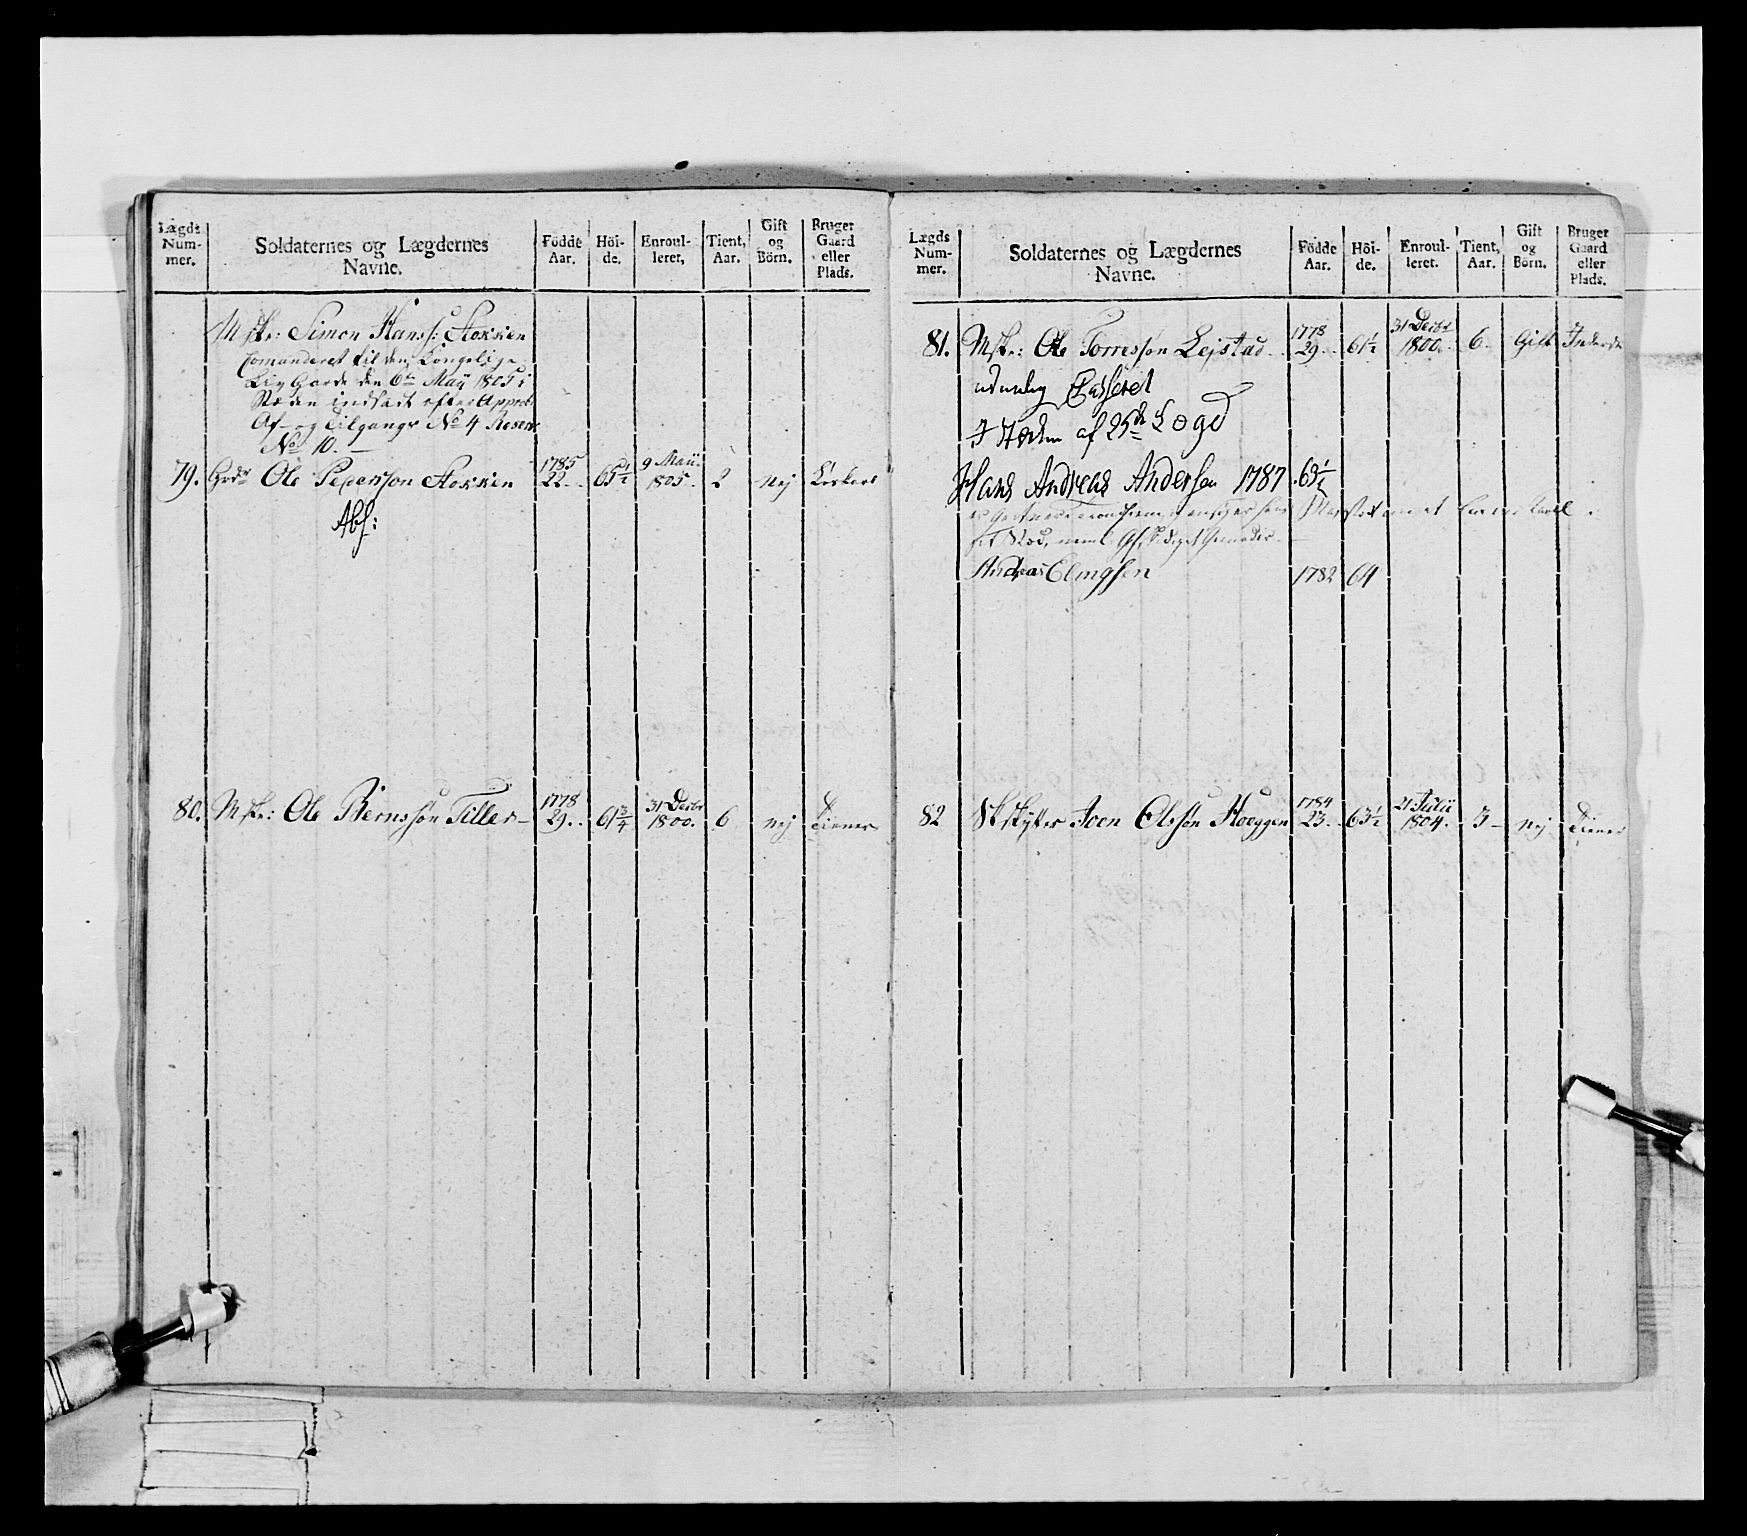 Lægds Num-mer.
Soldaternes og Lægdernes Navne.
Födde Aar.
Höi-de.
Enroul-leret.
Tient, Aar.
Gift og Börn.
Bruger Gaard eller Plads.
Mskr: Simon Hanss: Stokken
Comanderet til den Kongelige
Liv Garde den 6te Maÿ 1805 i
Stæden indsadt efter Approb
Af- og Tilgangs No 4 Reserv
No 10.
79. Ole Pedersson Stokken 1785 22. 65½ 9 Maii 1805. 2 nej
Abs:
80. Mskr: Ole Bernsson Tiller 1778 29. 61¾ 31 Decbr 1800. 6 nej Tiener
Lægds Num-mer.
Soldaternes og Lægdernes Navne.
Födde Aar.
Höi-de.
Enroul-leret.
Tient, Aar.
Gift og Börn.
Bruger Gaard eller Plads.
81. Mskr: Ole Torresson Lejstad 1778 29. 61½ 31 Decbr 1800. 6. Gift
Casseret
I Stæden af 25de Lægd
Hans Andreas Andersen 1787 63½
Andreas Elingsen 1782 64
82 Skskytter Joen Olsson Hoeggen 1784 23. 63½ 21 Julii 1804. 3 nej Tiener